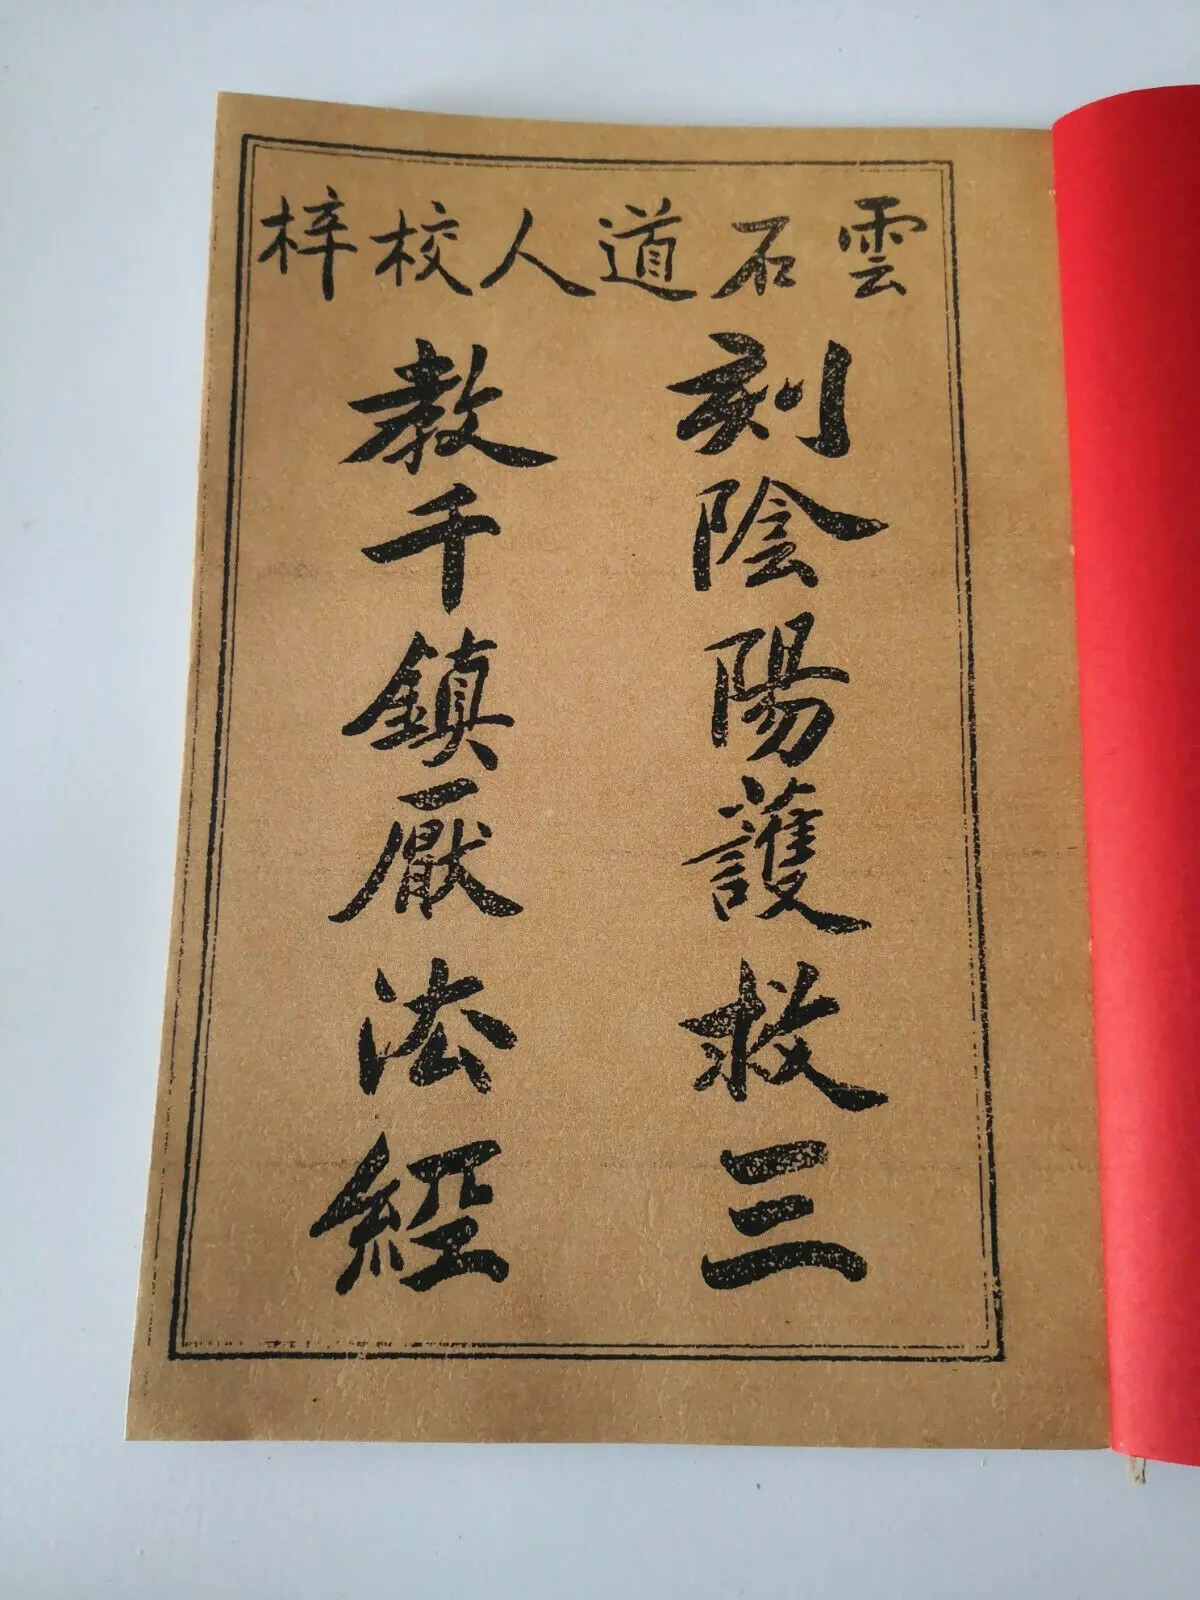 雲石道人校梓
刻陰陽護救三
教千鎮厭法經